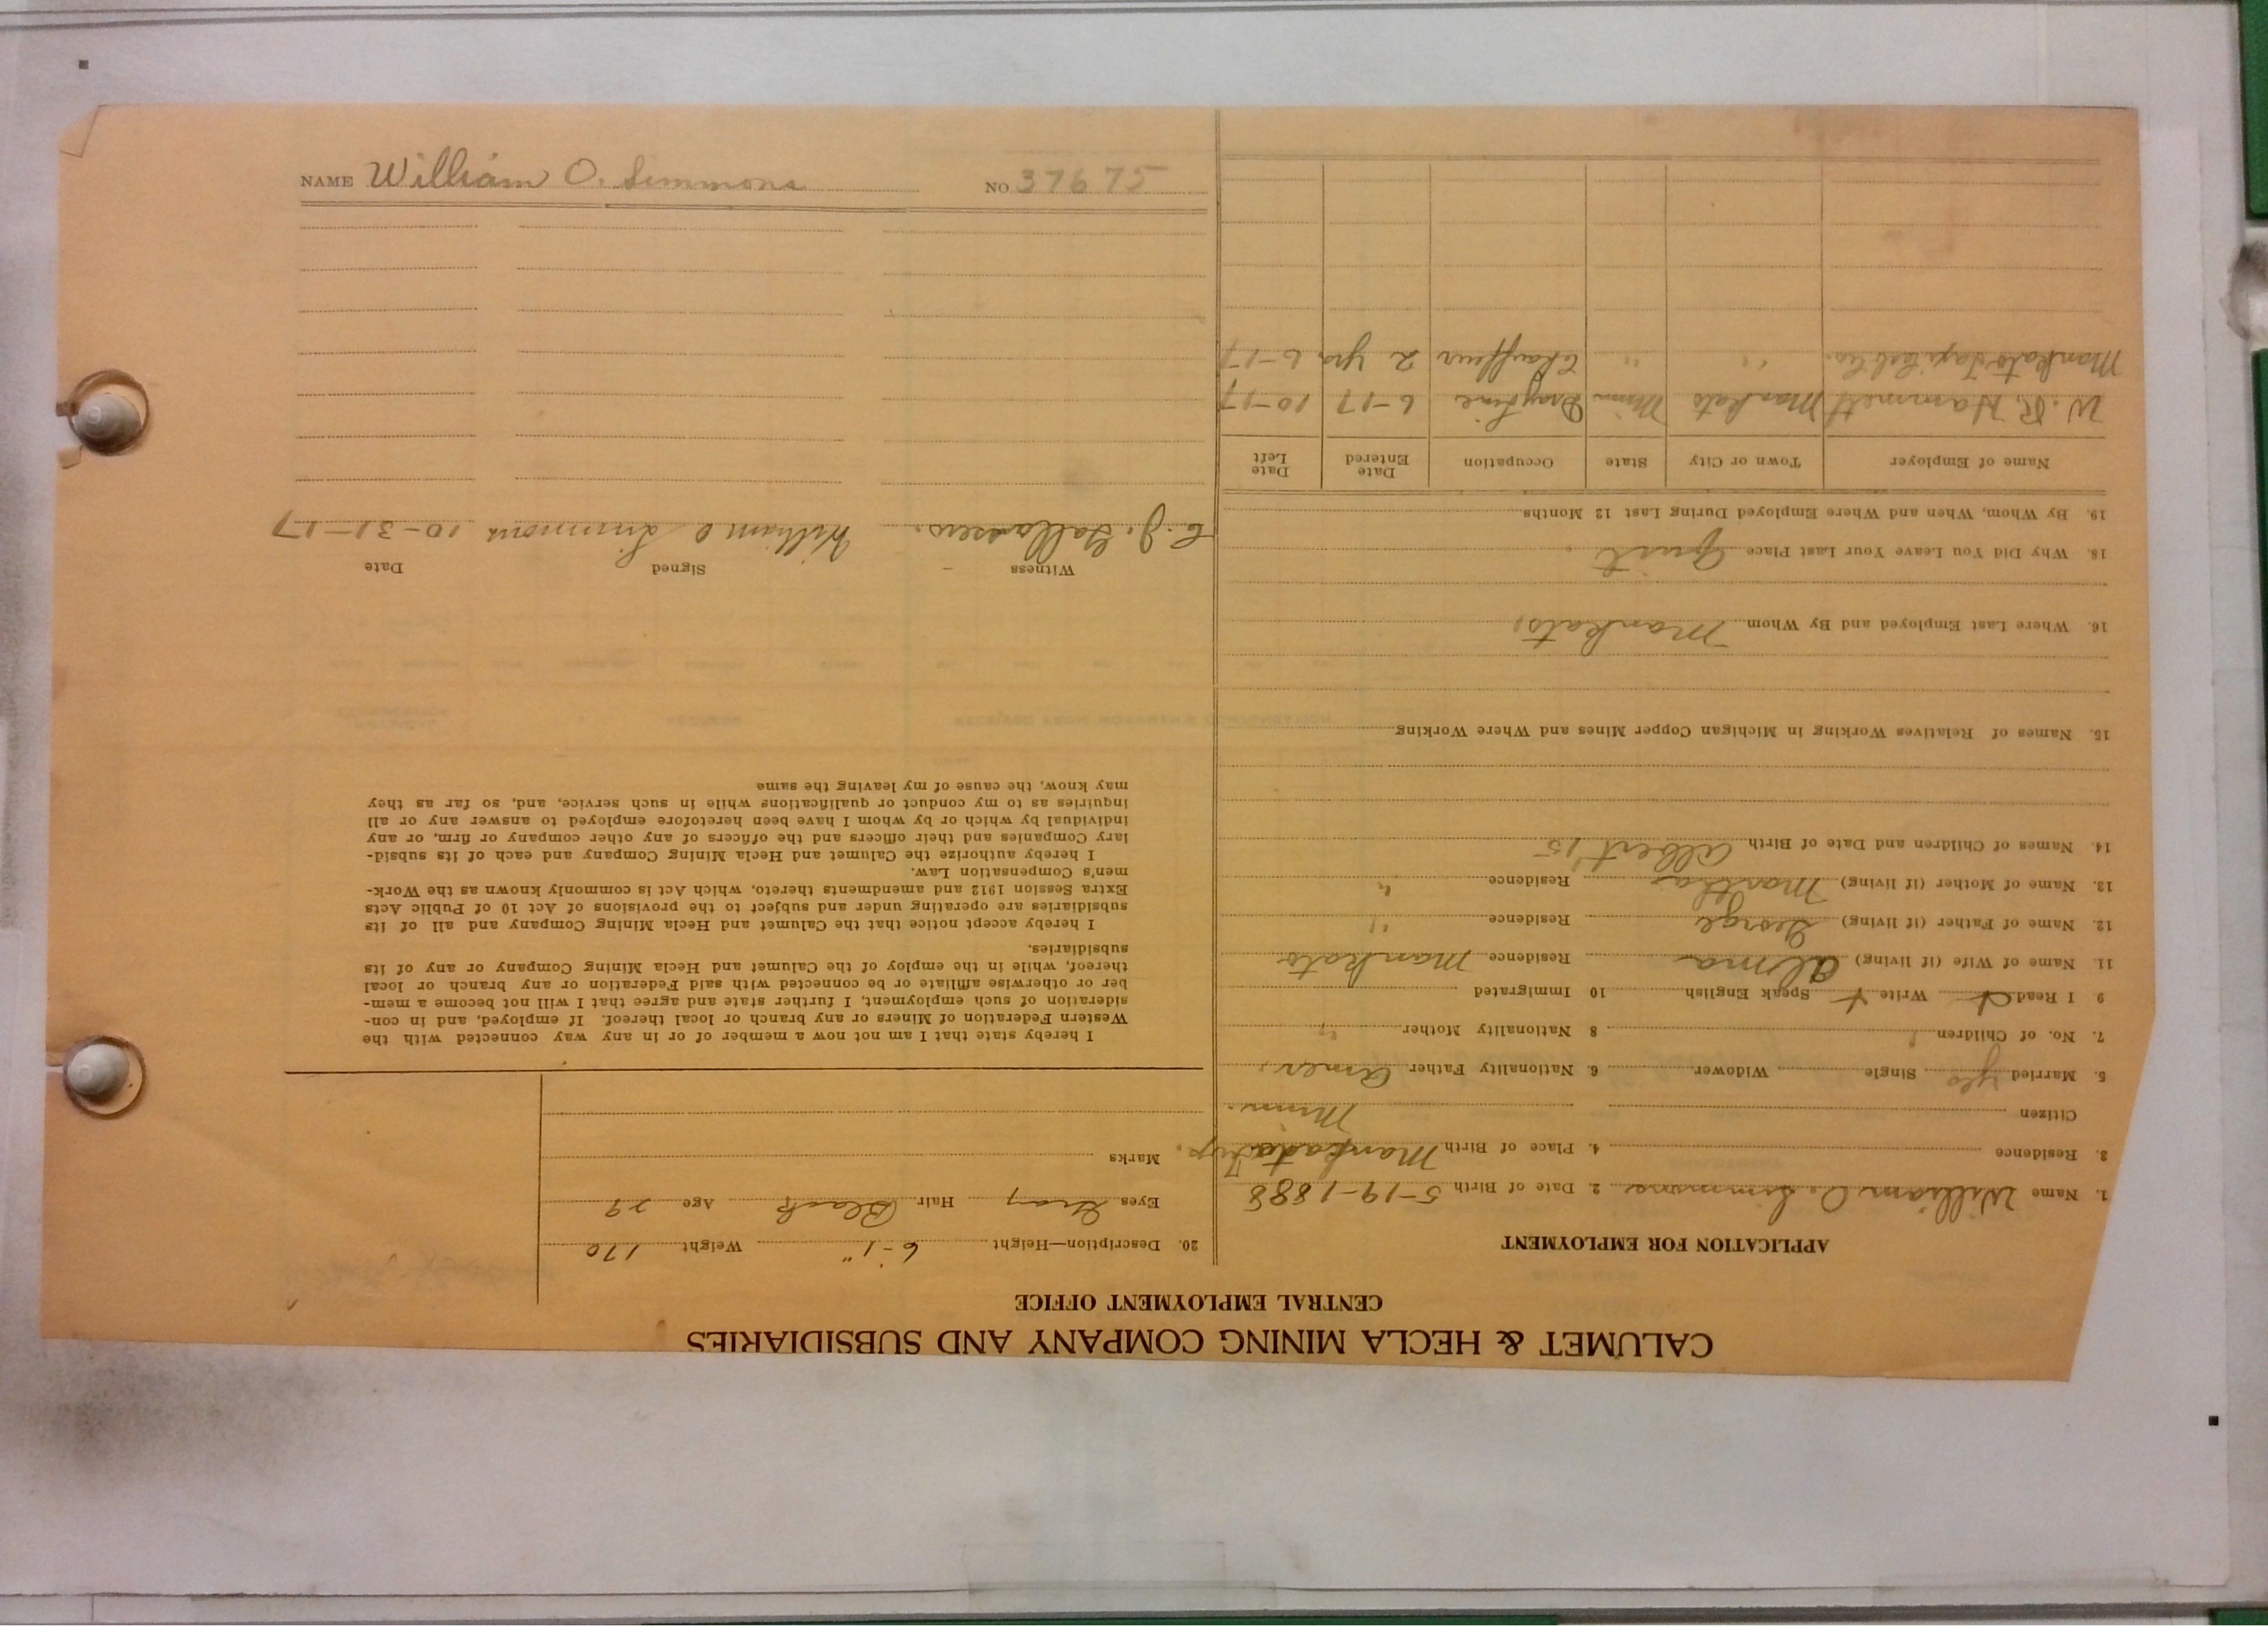 NAME William O. Simmons NO. 37675
CALUMET & HECLA MINING COMPANY AND SUBSIDIARIES
CENTRAL EMPLOYMENT OFFICE
APPLICATION FOR EMPLOYMENT
1. Name William O. Simmons 2. Date of Birth 5-19-1888
3. Residence 4. Place of Birth Mankato Twp.
Citizen Minn.
5. Married yes Single Widower 6. Nationality Father Amer.
7. No. of Children 1 8 Nationality Mother "
9 I Read Write Speak English 10 Immigrated
11. Name of Wife (if living) Alma Residence Mankato
12. Name of Father (if living) George Residence "
13. Name of Mother (if living) Martha Residence "
14. Names of Children and Date of Birth Albert '15
15. Names of Relatives Working in Michigan Copper Mines and Where Working
16. Where Last Employed and By Whom Mankato,
18. Why Did You Leave Your Last Place Quit.
19. By Whom, When and Where Employed During Last 12 Months
Name of Employer Town or City State Occupation Date Entered Date Left
W. R. Hammett Mankato Minn Dray Line 6-17 10-17
Mankato Taxi Cab Co. " " Chauffeur 2 yrs 6-17
20. Description—Height 6-1" Weight 170
Eyes Gray Hair Black Age 29
Marks
I hereby state that I am not now a member of or in any way connected with the
Western Federation of Miners or any branch or local thereof. If employed, and in con-
sideration of such employment, I further state and agree that I will not become a mem-
ber or otherwise affiliate or be connected with said Federation or any branch or local
thereof, while in the employ of the Calumet and Hecla Mining Company or any of its
subsidiaries.
I hereby accept notice that the Calumet and Hecla Mining Company and all of its
subsidiaries are operating under and subject to the provisions of Act 10 of Public Acts
Extra Session 1912 and amendments thereto, which Act is commonly known as the Work-
men's Compensation Law.
I hereby authorize the Calumet and Hecla Mining Company and each of its subsid-
iary Companies and their officers and the officers of any other company or firm, or any
individual by which or by whom I have been heretofore employed to answer any or all
inquiries as to my conduct or qualifications while in such service, and, so far as they
may know, the cause of my leaving the same
Witness Signed Date
C. J. William O Simmons 10-31-17